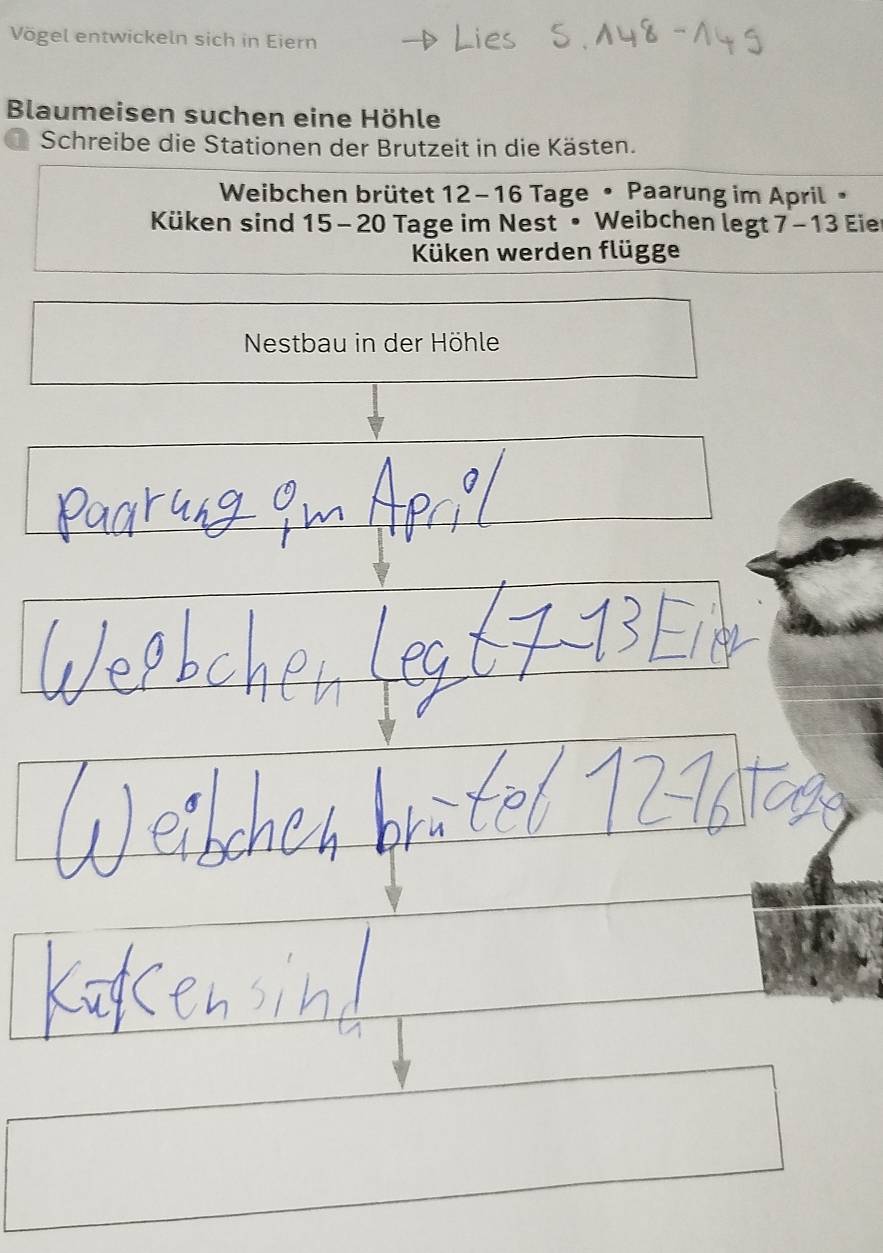 Vögel entwickeln sich in Eiern → Lies S. 148 - 149
Blaumeisen suchen eine Höhle
1 Schreibe die Stationen der Brutzeit in die Kästen.
Weibchen brütet 12–16 Tage • Paarung im April •
Küken sind 15–20 Tage im Nest • Weibchen legt 7–13 Eier
Küken werden flügge
Nestbau in der Höhle
Paarung im April
Weibchen legt 7-13 Eier
Weibchen brütet 12-16 Tage
Küken sind